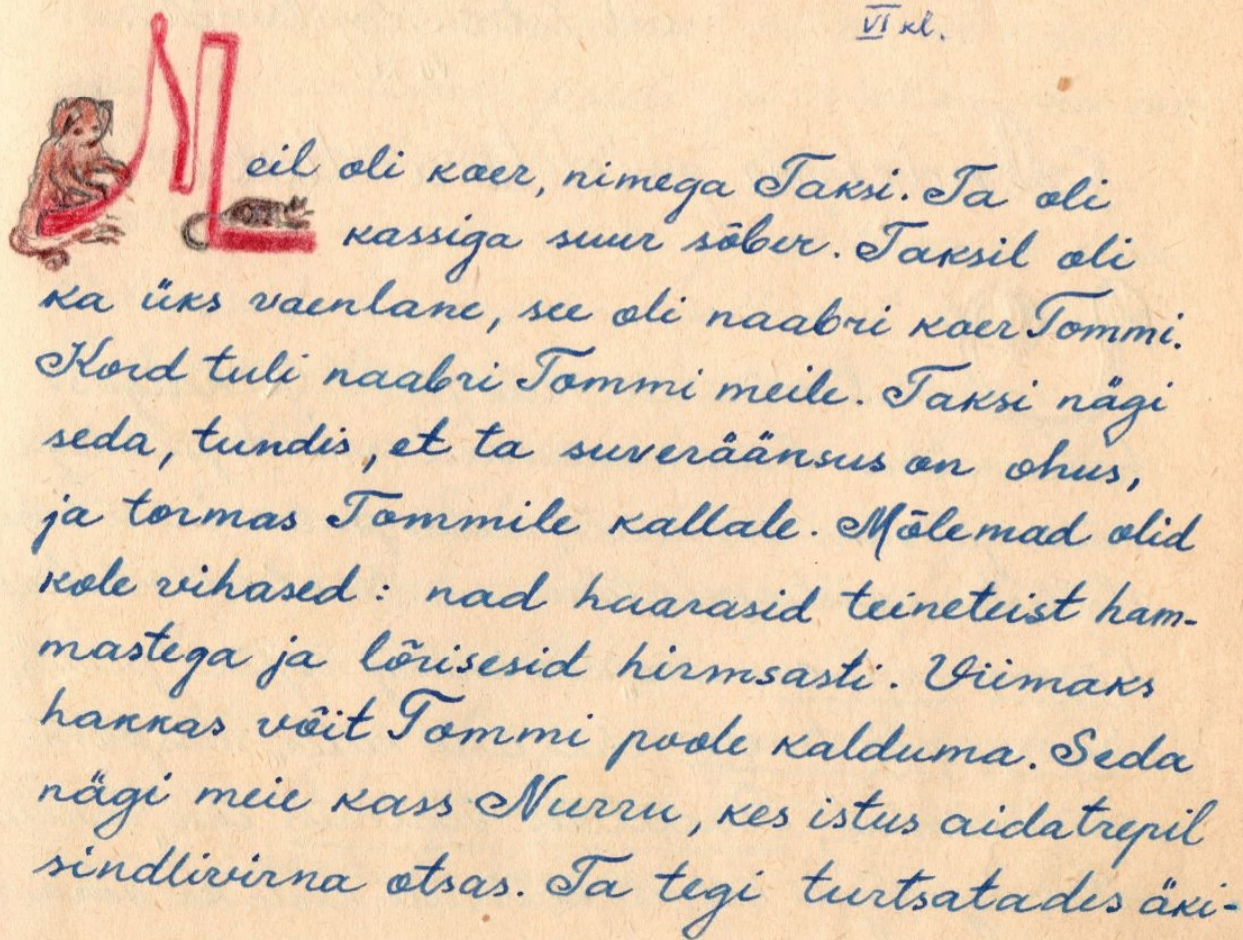 VI kl.
Meil oli koer, nimega Taksi. Ta oli
kassiga suur sõber. Taksil oli
ka üks vaenlane, see oli naabri koer Tommi.
Kord tuli naabri Tommi meile. Taksi nägi
seda, tundis, et ta suveräänsus on ohus,
ja tormas Tommile kallale. Mõlemad olid
kole vihased: nad haarasid teineteist ham-
mastega ja lõrisesid hirmsasti. Viimaks
hakkas võit Tommi poole kalduma. Seda
nägi meie kass Nurru, kes istus aidatrepil
sindlivirna otsas. Ta tegi turtsatades äki-